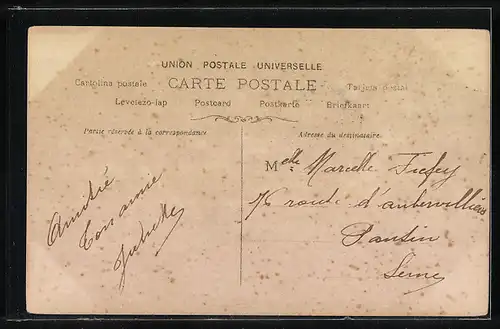 UNION POSTALE UNIVERSELLE
Cartolina postale CARTE POSTALE Tarjeta postal
Levelező-lap Postcard Postkarte Briefkaart
Partie réservée à la correspondance
Adresse du destinataire
Amitié
Ton amie
Juliette
Melle Marcelle
76 route d'aubervilliers
Pantin
Seine